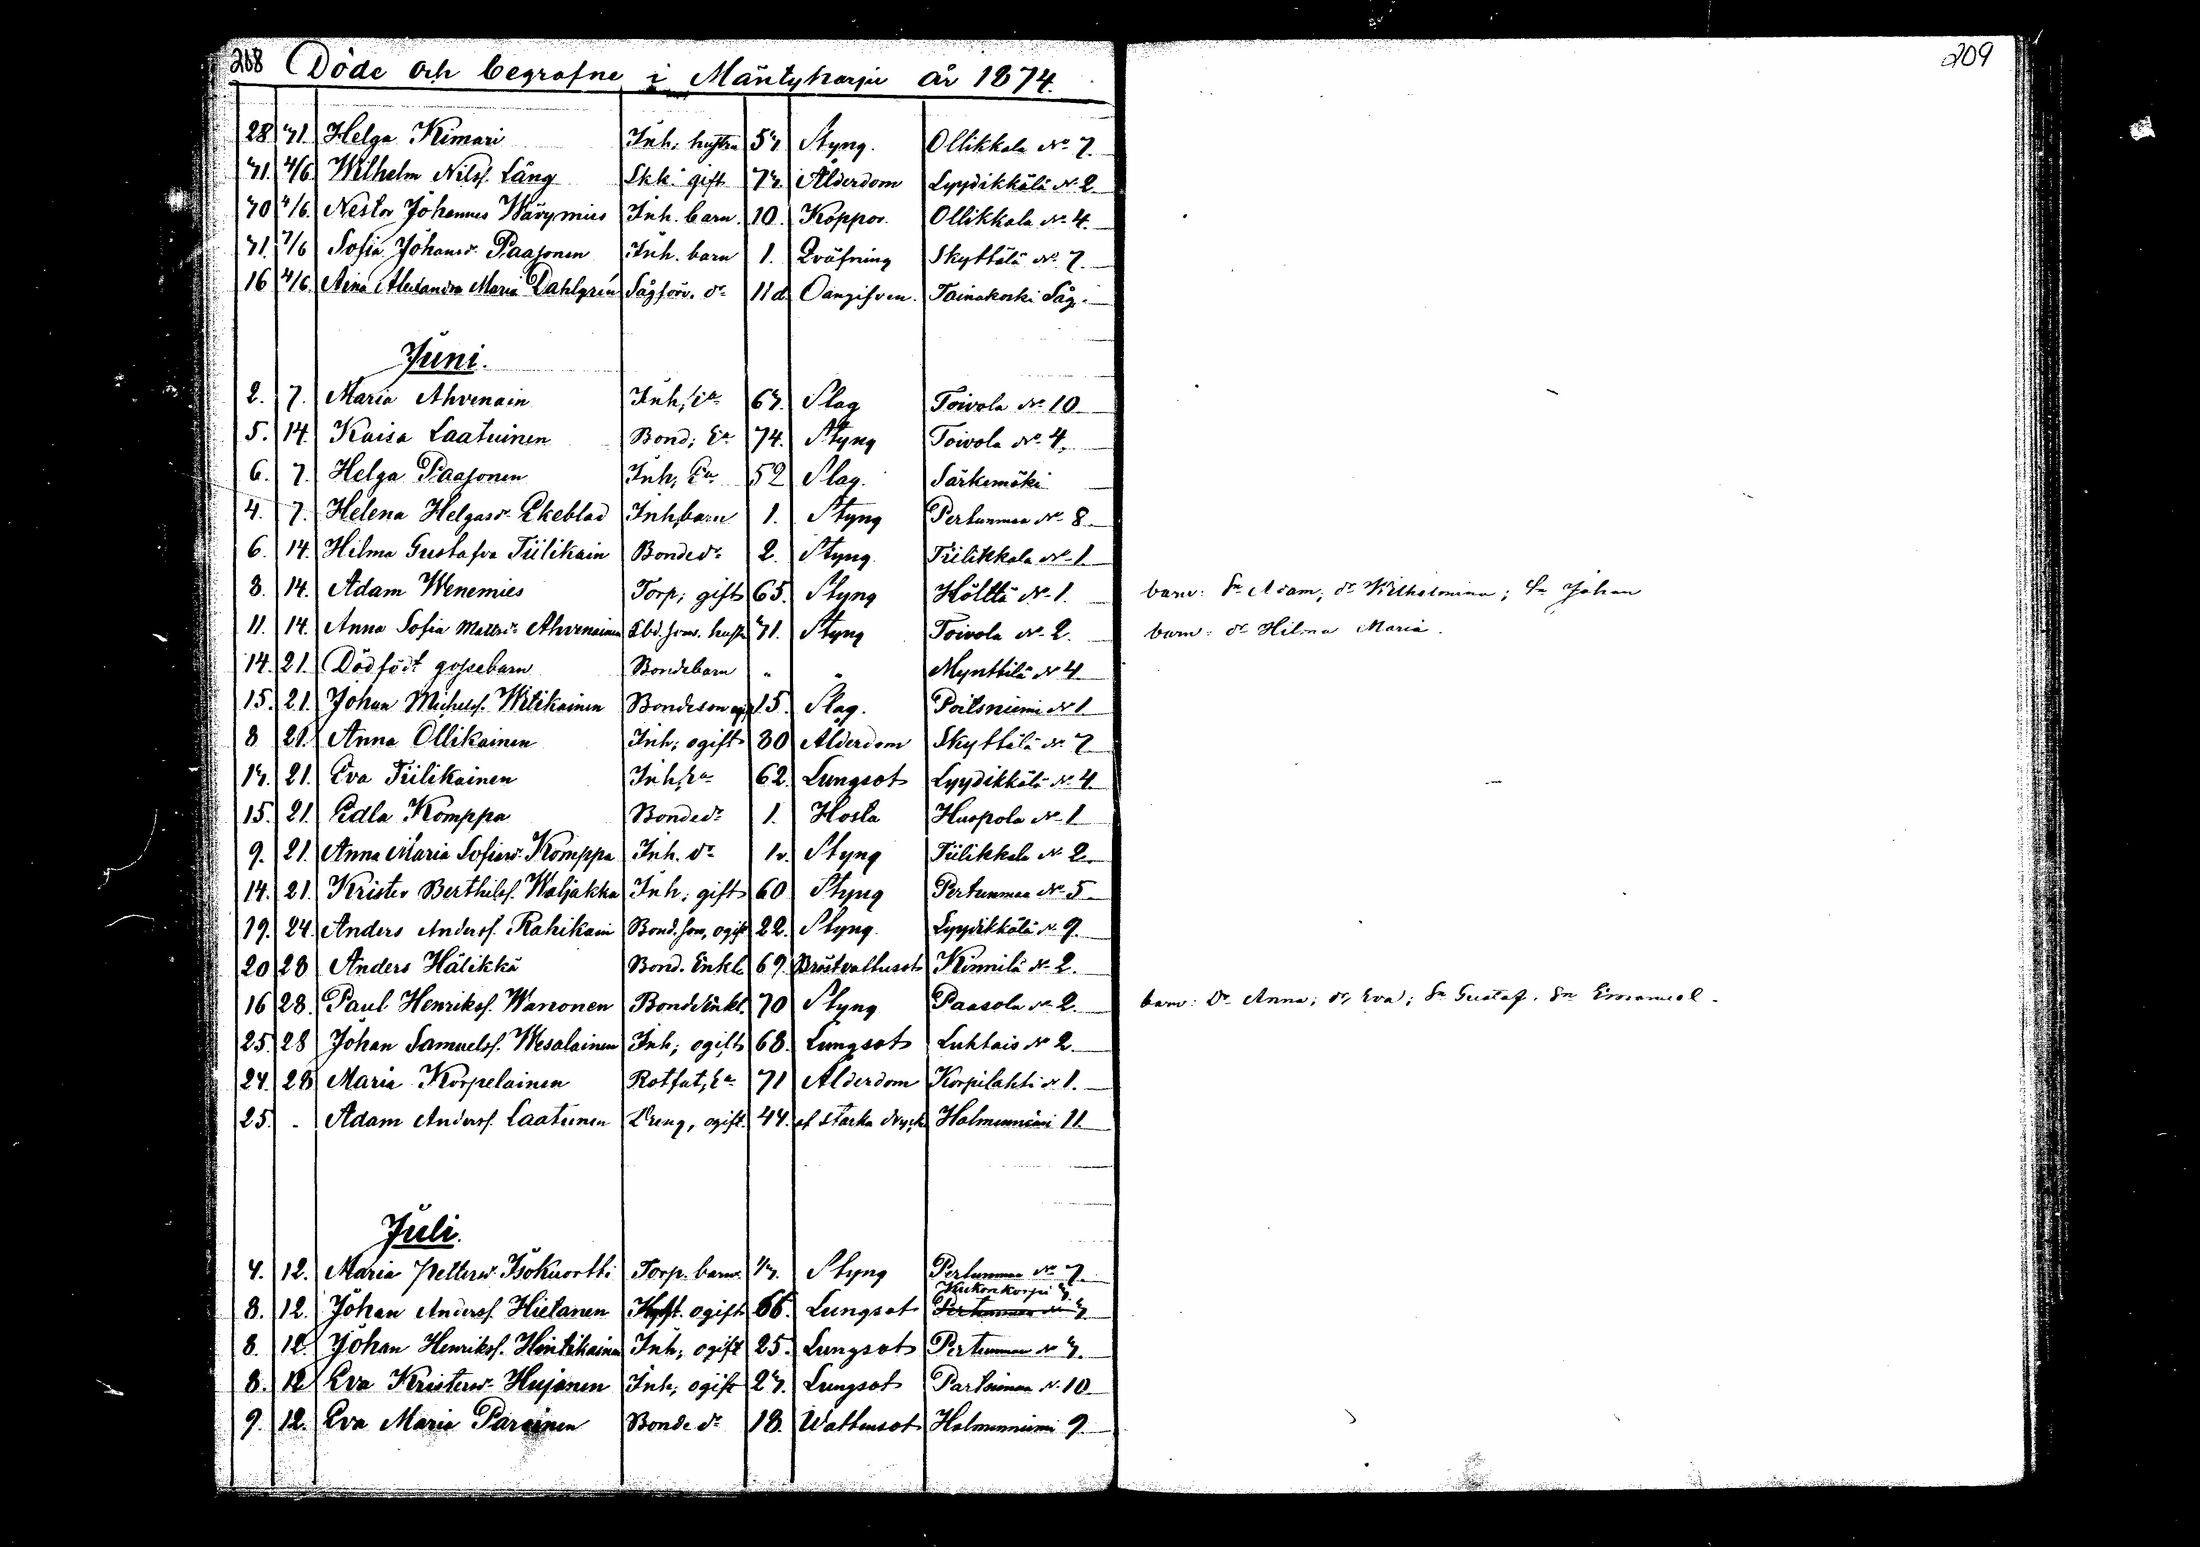 208 Döde och begrafne i Mäntyharju år 1874.
209
28 31. Helga Kimari Inh. hustru 57. Styng. Ollikkala No 7.
31. 7/6 Wilhelm Nilss. Lång Skk. gift 73. Ålderdom Lyydikkälä No 2.
30 7/6. Nestor Johannes Wärymies Inh. barn. 10. Koppor. Ollikkala No 4.
31. 7/6 Sofia Johansdr Paasonen Inh. barn 1. Qväfning Skyttälä No 7.
16 4/6. Aina Alexandra Maria Dahlgren Sågförv. dr 11 d Oangifven. Tainakoski Såg.
Juni.
2. 7. Maria Ahvenain Inh; Ea 67. Slag Toivola No 10
5. 14. Kaisa Laatuinen Bond; Ea 74. Styng Toivola No 4.
6. 7. Helga Paasonen Inh; Ea 52 Slag. Särkemäki
4. 7. Helena Helgasdr Ekeblad Inh. barn 1. Styng Pertunmaa No 8
6. 14. Hilma Gustafva Tiilikain Bonde dr 2. Styng. Tiilikkala No 1
8. 14. Adam Wenemies Torp; gift 65. Styng Hölttä No 1. barn: Sn Adam; dr Wilhelmina; Sn Johan
11. 14. Anna Sofia Mattsdr Ahvenainen hustr 31. Styng Toivola No 2. barn: dr Hilma Maria.
14. 21. Dödfödt gossebarn Bondebarn " " Mynttilä No 4
15. 21. Johan Michelss. Witikainen Bondeson 15. Slag. Poitsniemi No 1
8 21. Anna Ollikainen Inh; ogift 80 Ålderdom Skyttälä No 7
17. 21. Eva Tiilikainen Inh; Ea 62. Lungsot Lyydikkälä No 4
15. 21. Edla Komppa Bonde dr 1. Hosta Huopola No 1
9. 21. Anna Maria Sofiasdr Komppa Inh. dr Styng Tiilikkala No 2.
14. 21. Krister Berthilss. Waljakka Inh; gift 60 Styng Pertunmaa No 5
19. 24. Anders Anderss. Rahikain Bond. son, ogift 22. Styng. Lyydikkälä No 9.
20 28 Anders Hälikkä Bond. Enkl. 69. Bröstvattusot Kinnilä No 2.
16 28. Paul Henrikss. Wanonen Bonde Enkl. 70 Styng Paasola No 2. barn: Dr Anna; dr Eva; Sn Gustaf. Sn Emanuel.
25. 28 Johan Samuelss. Wesalainen Inh; ogift 68. Lungsot Luhtais No 2.
24. 28 Maria Korpelainen Rotfat; Ea 71 Ålderdom Korpilahti No 1.
25. - Adam Anderss. Laatunen Dreng, ogift. 44. af starka dryck Halmenniemi 11
Juli.
4. 12. Maria Pettersdr Isokuortti Torp. barn Styng Pertunmaa No 7.
8. 12. Johan Anderss. Hietanen ogift 66. Lungsot Kuikonkorpi 7 Pertunmaa No 7
8. 12. Johan Henrikss. Hintikainen Inh; ogift 25. Lungsot Pertunmaa No 7.
8. 12 Eva Kristersdr Hujanen Inh; ogift 27. Lungsot Partsimaa No 10
9. 12. Eva Maria Parsinen Bonde dr 18. Wattusot Halmenniemi 9.